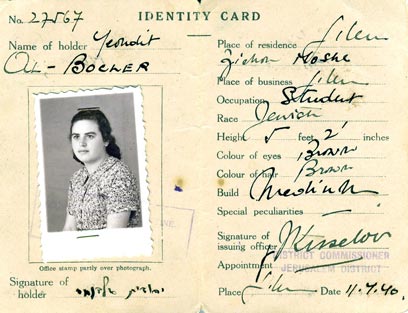 No. 27567
IDENTITY CARD
Name of holder Yeoudit
AL-BOCHER
Office stamp partly over photograph.
Signature of
holder יהודית
Place of residence J'lem
Zichon Moshe
Place of business J'lem
Occupation Student
Race Jewish
Height 5 feet 2 inches
Colour of eyes Brown
Colour of hair Brown
Build Medium
Special peculiarities —
Signature of
issuing officer
DISTRICT COMMISSIONER
Appointment
JERUSALEM DISTRICT
Place J'lem Date 11.7.40.